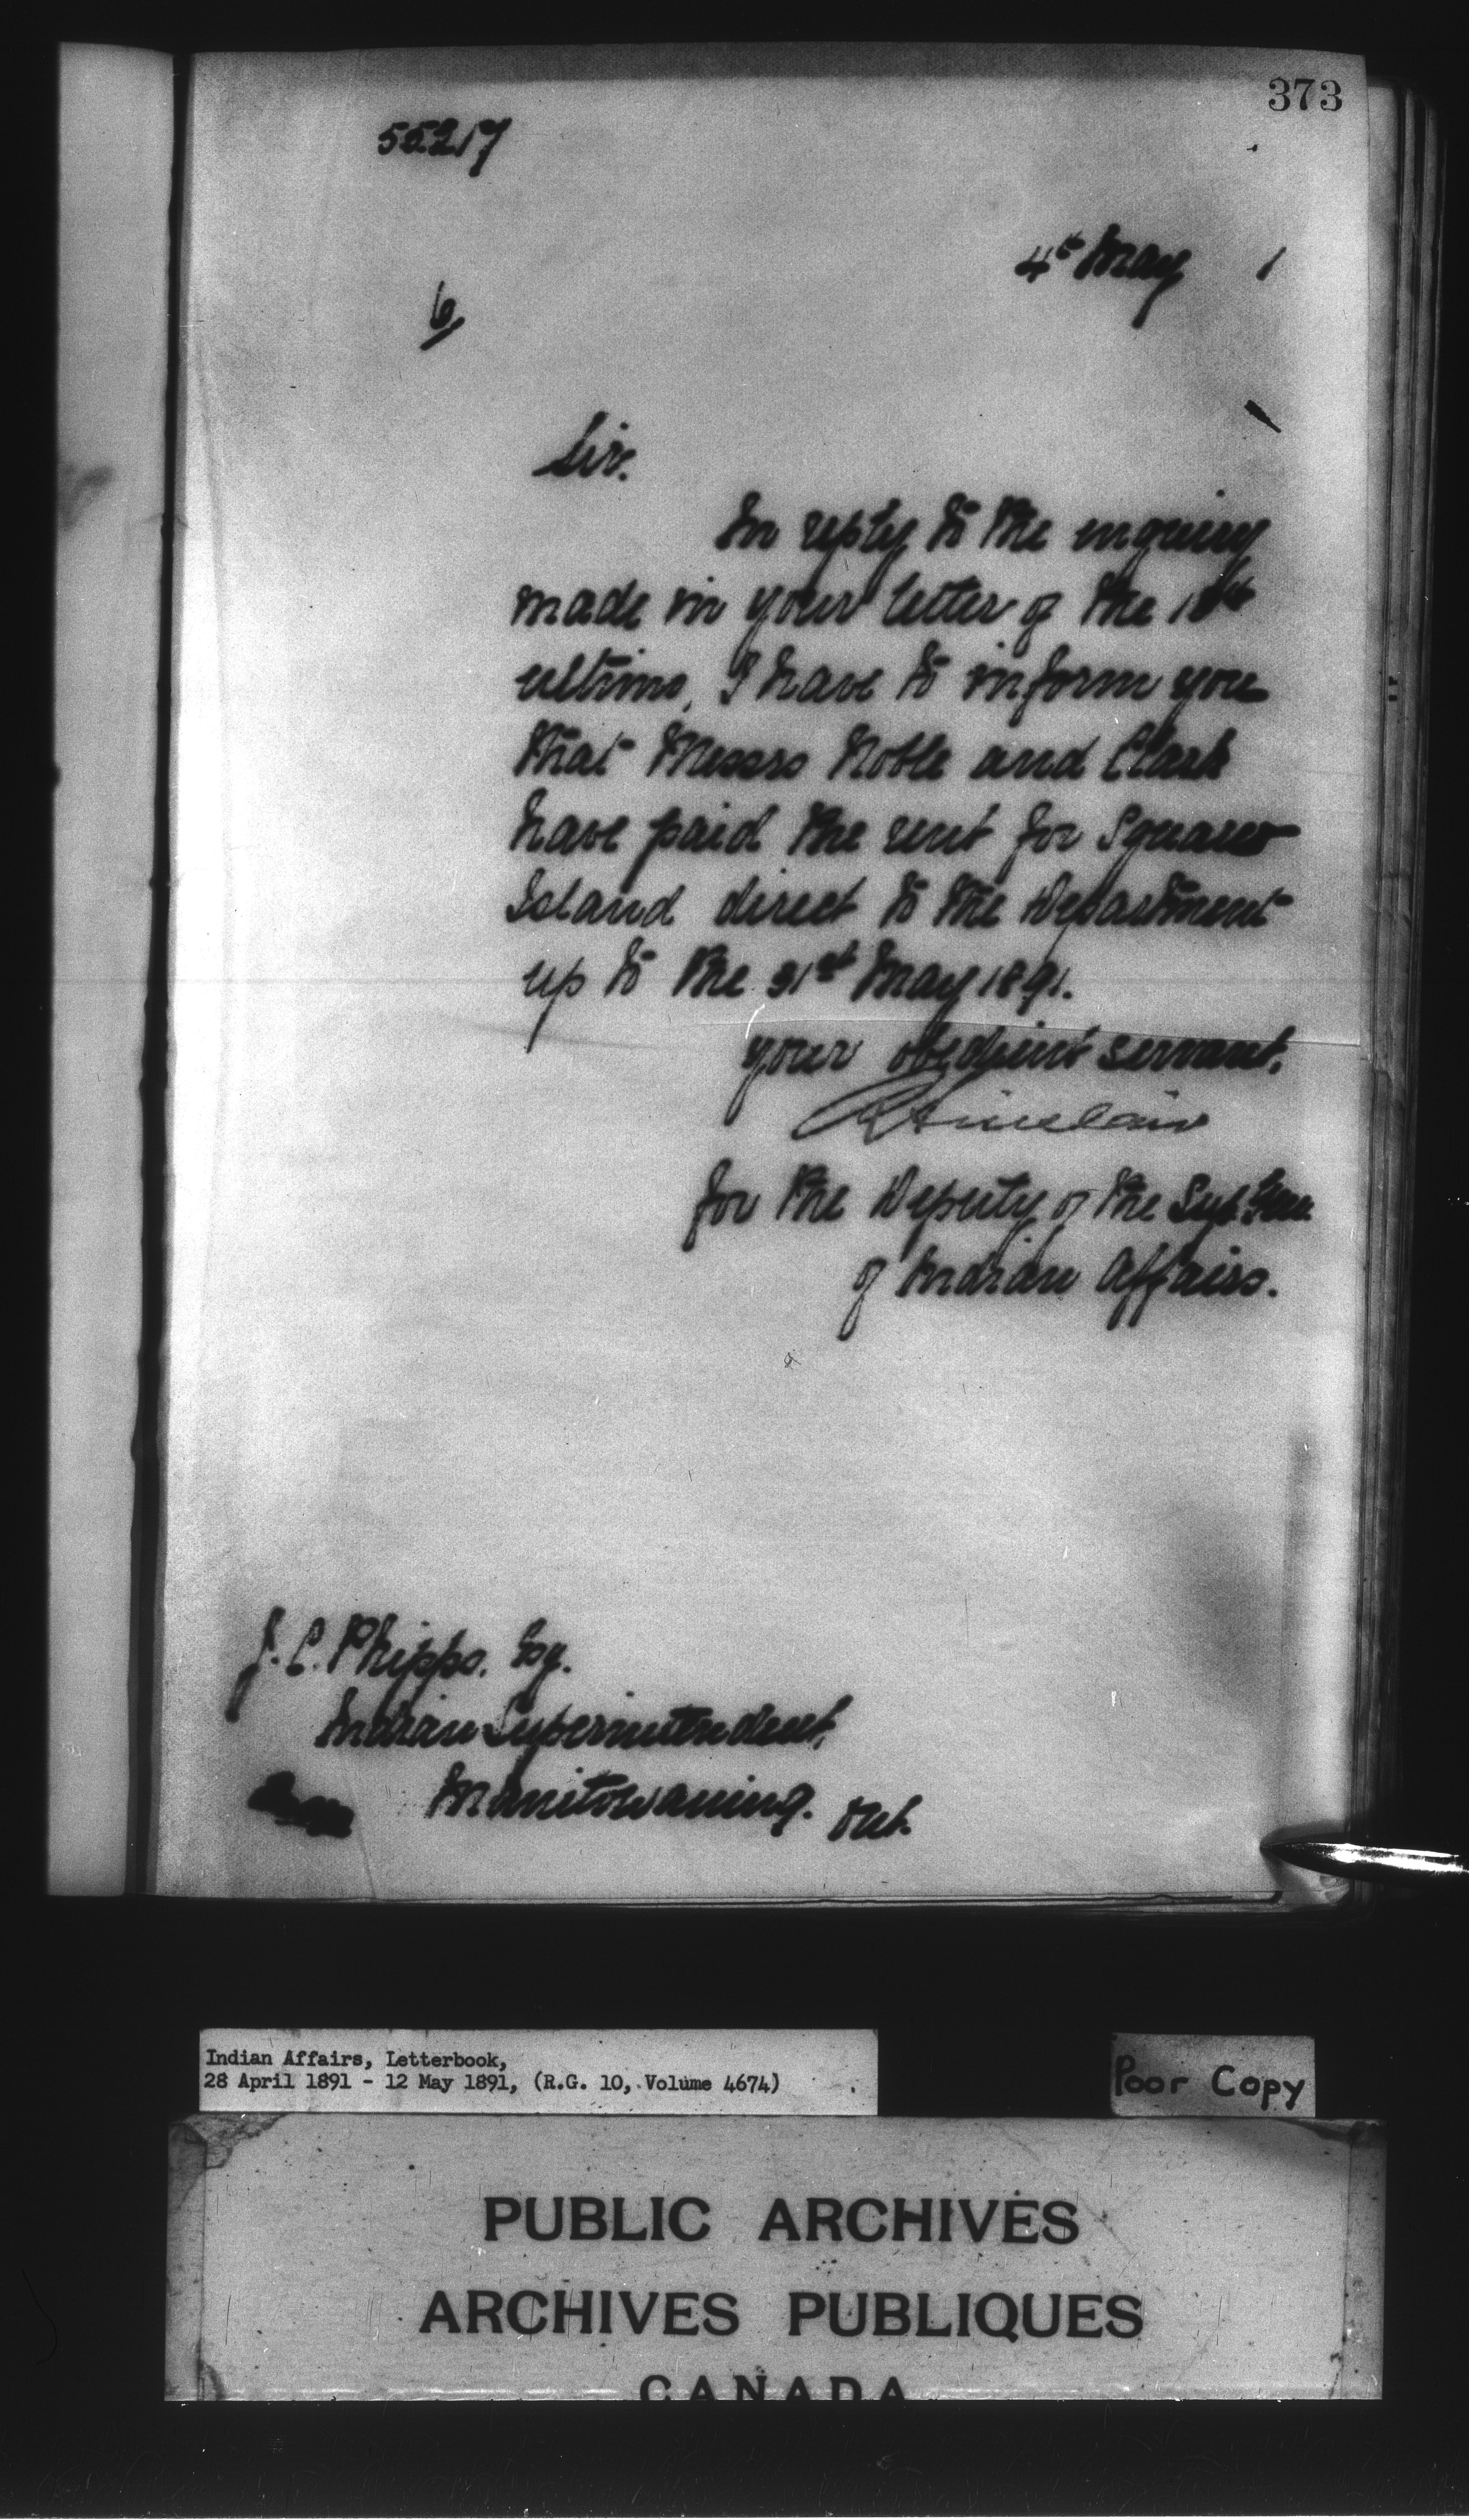 373
55217
4th May 1
6,
Sir.
In reply to the inquiry
made in your letter of the
ultimo, I have to inform you
that Messrs Noble and Clark
have paid the rent for Squaw
Island direct to the Department
up to the 31st May 1891.
your obedient servant.
R Sinclair
for the Deputy of the Sup. Gen.
of Indian Affairs.
J. C. Phipps. Esq.
Indian Superintendent,
Manitowaning. Ont.
Indian Affairs, Letterbook,
28 April 1891 - 12 May 1891, (R.G. 10, Volume 4674)
Poor Copy
PUBLIC ARCHIVES
ARCHIVES PUBLIQUES
CANADA